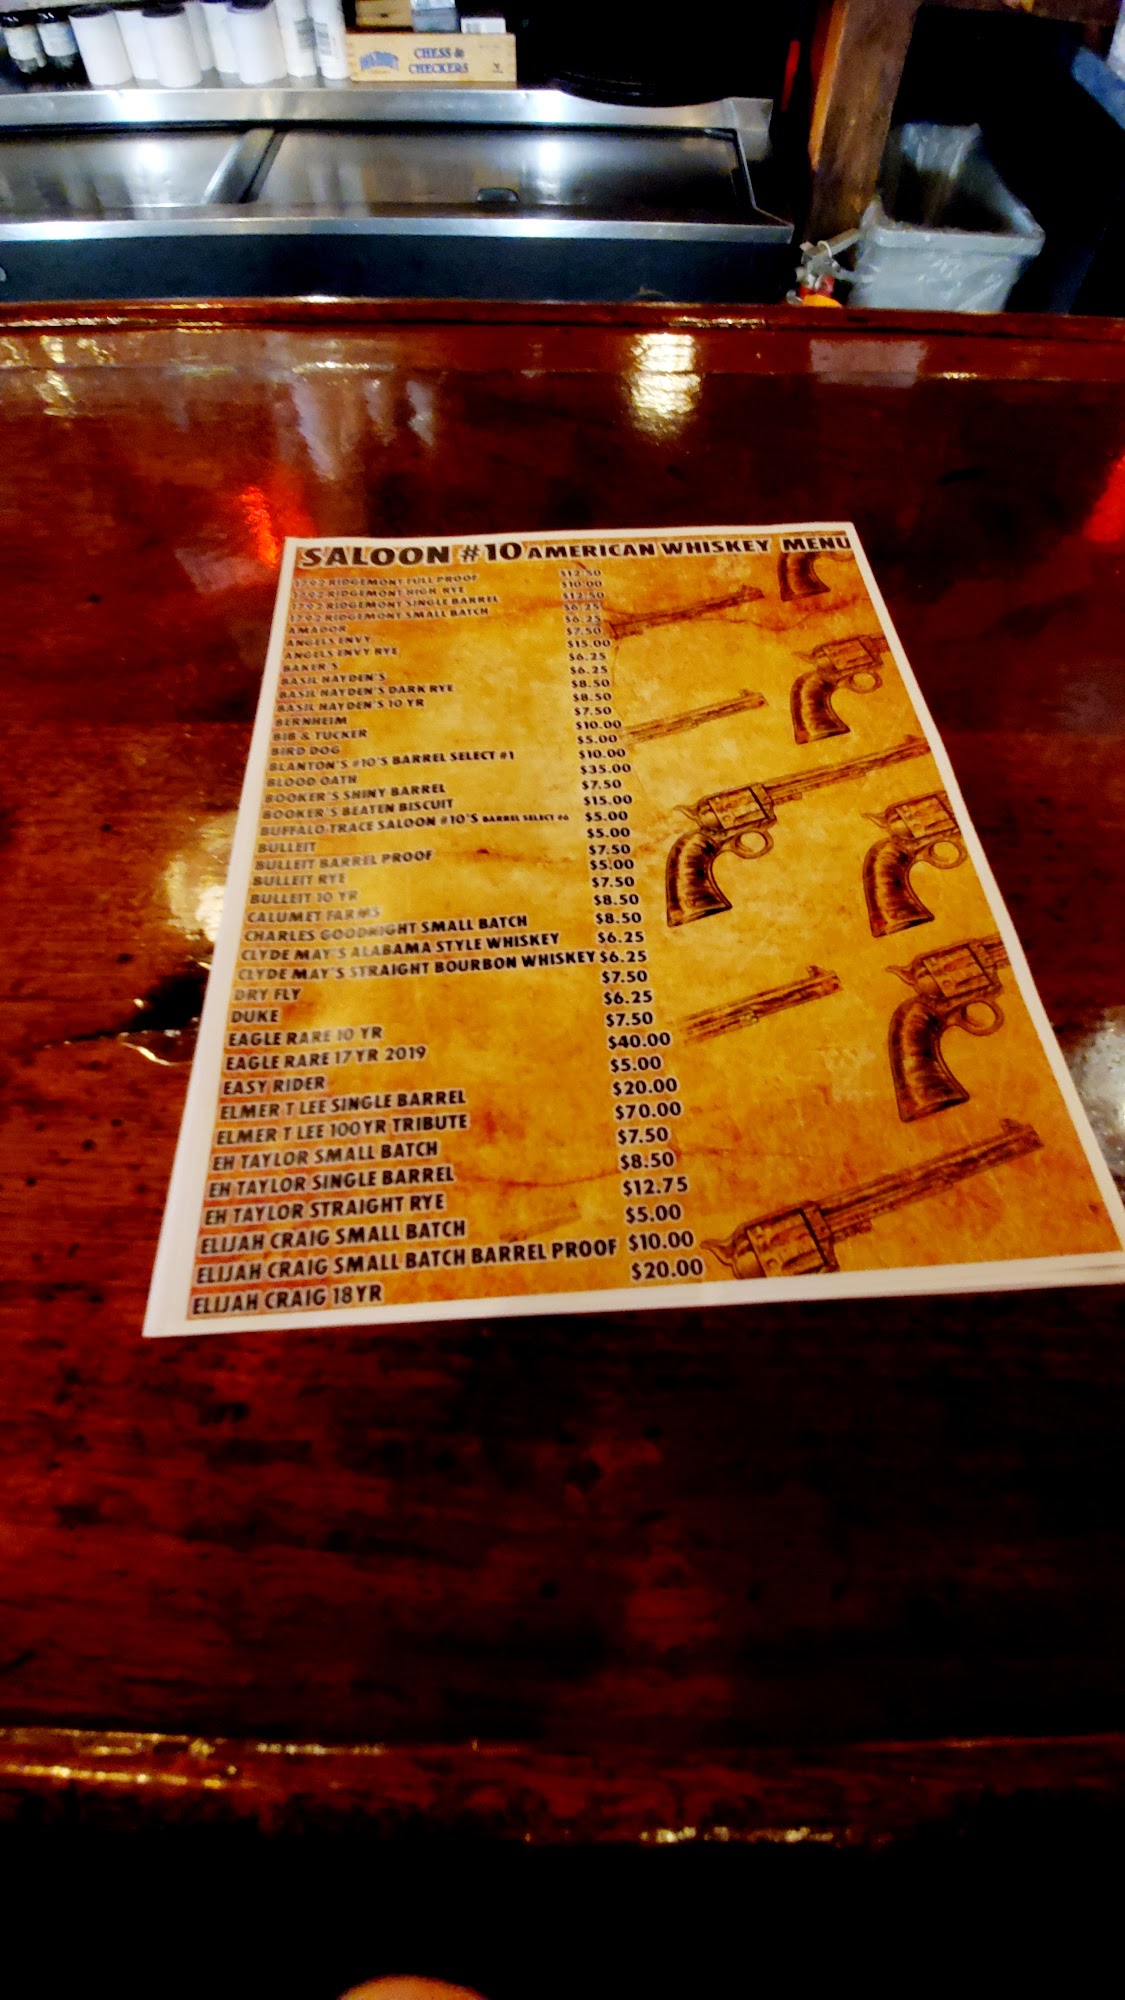 CHESS &
CHECKERS
SALOON #10 AMERICAN WHISKEY MENU
1792 RIDGEMONT FULL PROOF $12.50
1792 RIDGEMONT HIGH RYE $10.00
1792 RIDGEMONT SINGLE BARREL $12.50
1792 RIDGEMONT SMALL BATCH $6.25
AMADOR $6.25
ANGELS ENVY $7.50
ANGELS ENVY RYE $15.00
BAKER'S $6.25
BASIL HAYDEN'S $6.25
BASIL HAYDEN'S DARK RYE $8.50
BASIL HAYDEN'S 10 YR $8.50
BERNHEIM $7.50
BIB & TUCKER $10.00
BIRD DOG $5.00
BLANTON'S #10'S BARREL SELECT #1 $10.00
BLOOD OATH $35.00
BOOKER'S SHINY BARREL $7.50
BOOKER'S BEATEN BISCUIT $15.00
BUFFALO TRACE SALOON #10'S BARREL SELECT #6 $5.00
BULLEIT $5.00
BULLEIT BARREL PROOF $7.50
BULLEIT RYE $5.00
BULLEIT 10 YR $7.50
CALUMET FARMS $8.50
CHARLES GOODNIGHT SMALL BATCH $8.50
CLYDE MAY'S ALABAMA STYLE WHISKEY $6.25
CLYDE MAY'S STRAIGHT BOURBON WHISKEY $6.25
DRY FLY $7.50
DUKE $6.25
EAGLE RARE 10 YR $7.50
EAGLE RARE 17 YR 2019 $40.00
EASY RIDER $5.00
ELMER T LEE SINGLE BARREL $20.00
ELMER T LEE 100YR TRIBUTE $70.00
EH TAYLOR SMALL BATCH $7.50
EH TAYLOR SINGLE BARREL $8.50
EH TAYLOR STRAIGHT RYE $12.75
ELIJAH CRAIG SMALL BATCH $5.00
ELIJAH CRAIG SMALL BATCH BARREL PROOF $10.00
ELIJAH CRAIG 18YR $20.00